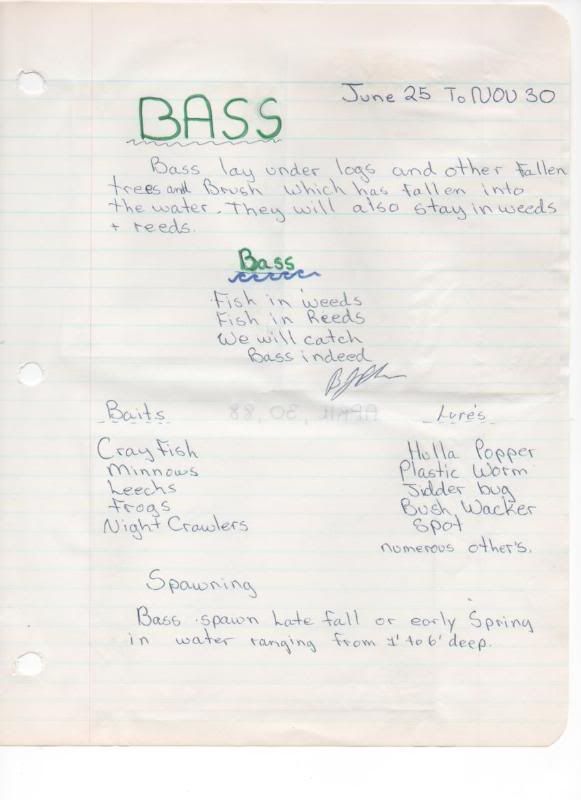 June 25 To NOV 30
BASS
Bass lay under logs and other fallen
trees and Brush which has fallen into
the water. They will also stay in weeds
+ reeds.
Bass
Fish in weeds
Fish in Reeds
We will catch
Bass indeed
APRIL 30, 88
Baits
Lure's
Cray Fish
Hulla Popper
Minnows
Plastic Worm
Leechs
Jidder bug
Frogs
Bush Wacker
Night Crawlers
Spot
numerous other's.
Spawning
Bass spawn Late fall or early Spring
in water ranging from 1' to 6' deep.